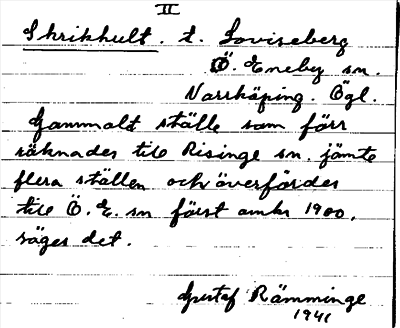 II
Skrikhult. t. Loviseberg
Ö. Eneby sn.
Norrköping. Ögl.
Gammalt ställe som förr
räknades till Risinge sn. jämte
flera ställen och överfördes
till Ö. E. sn först omkr 1900,
säges det.
Gustaf Rämminge
1941